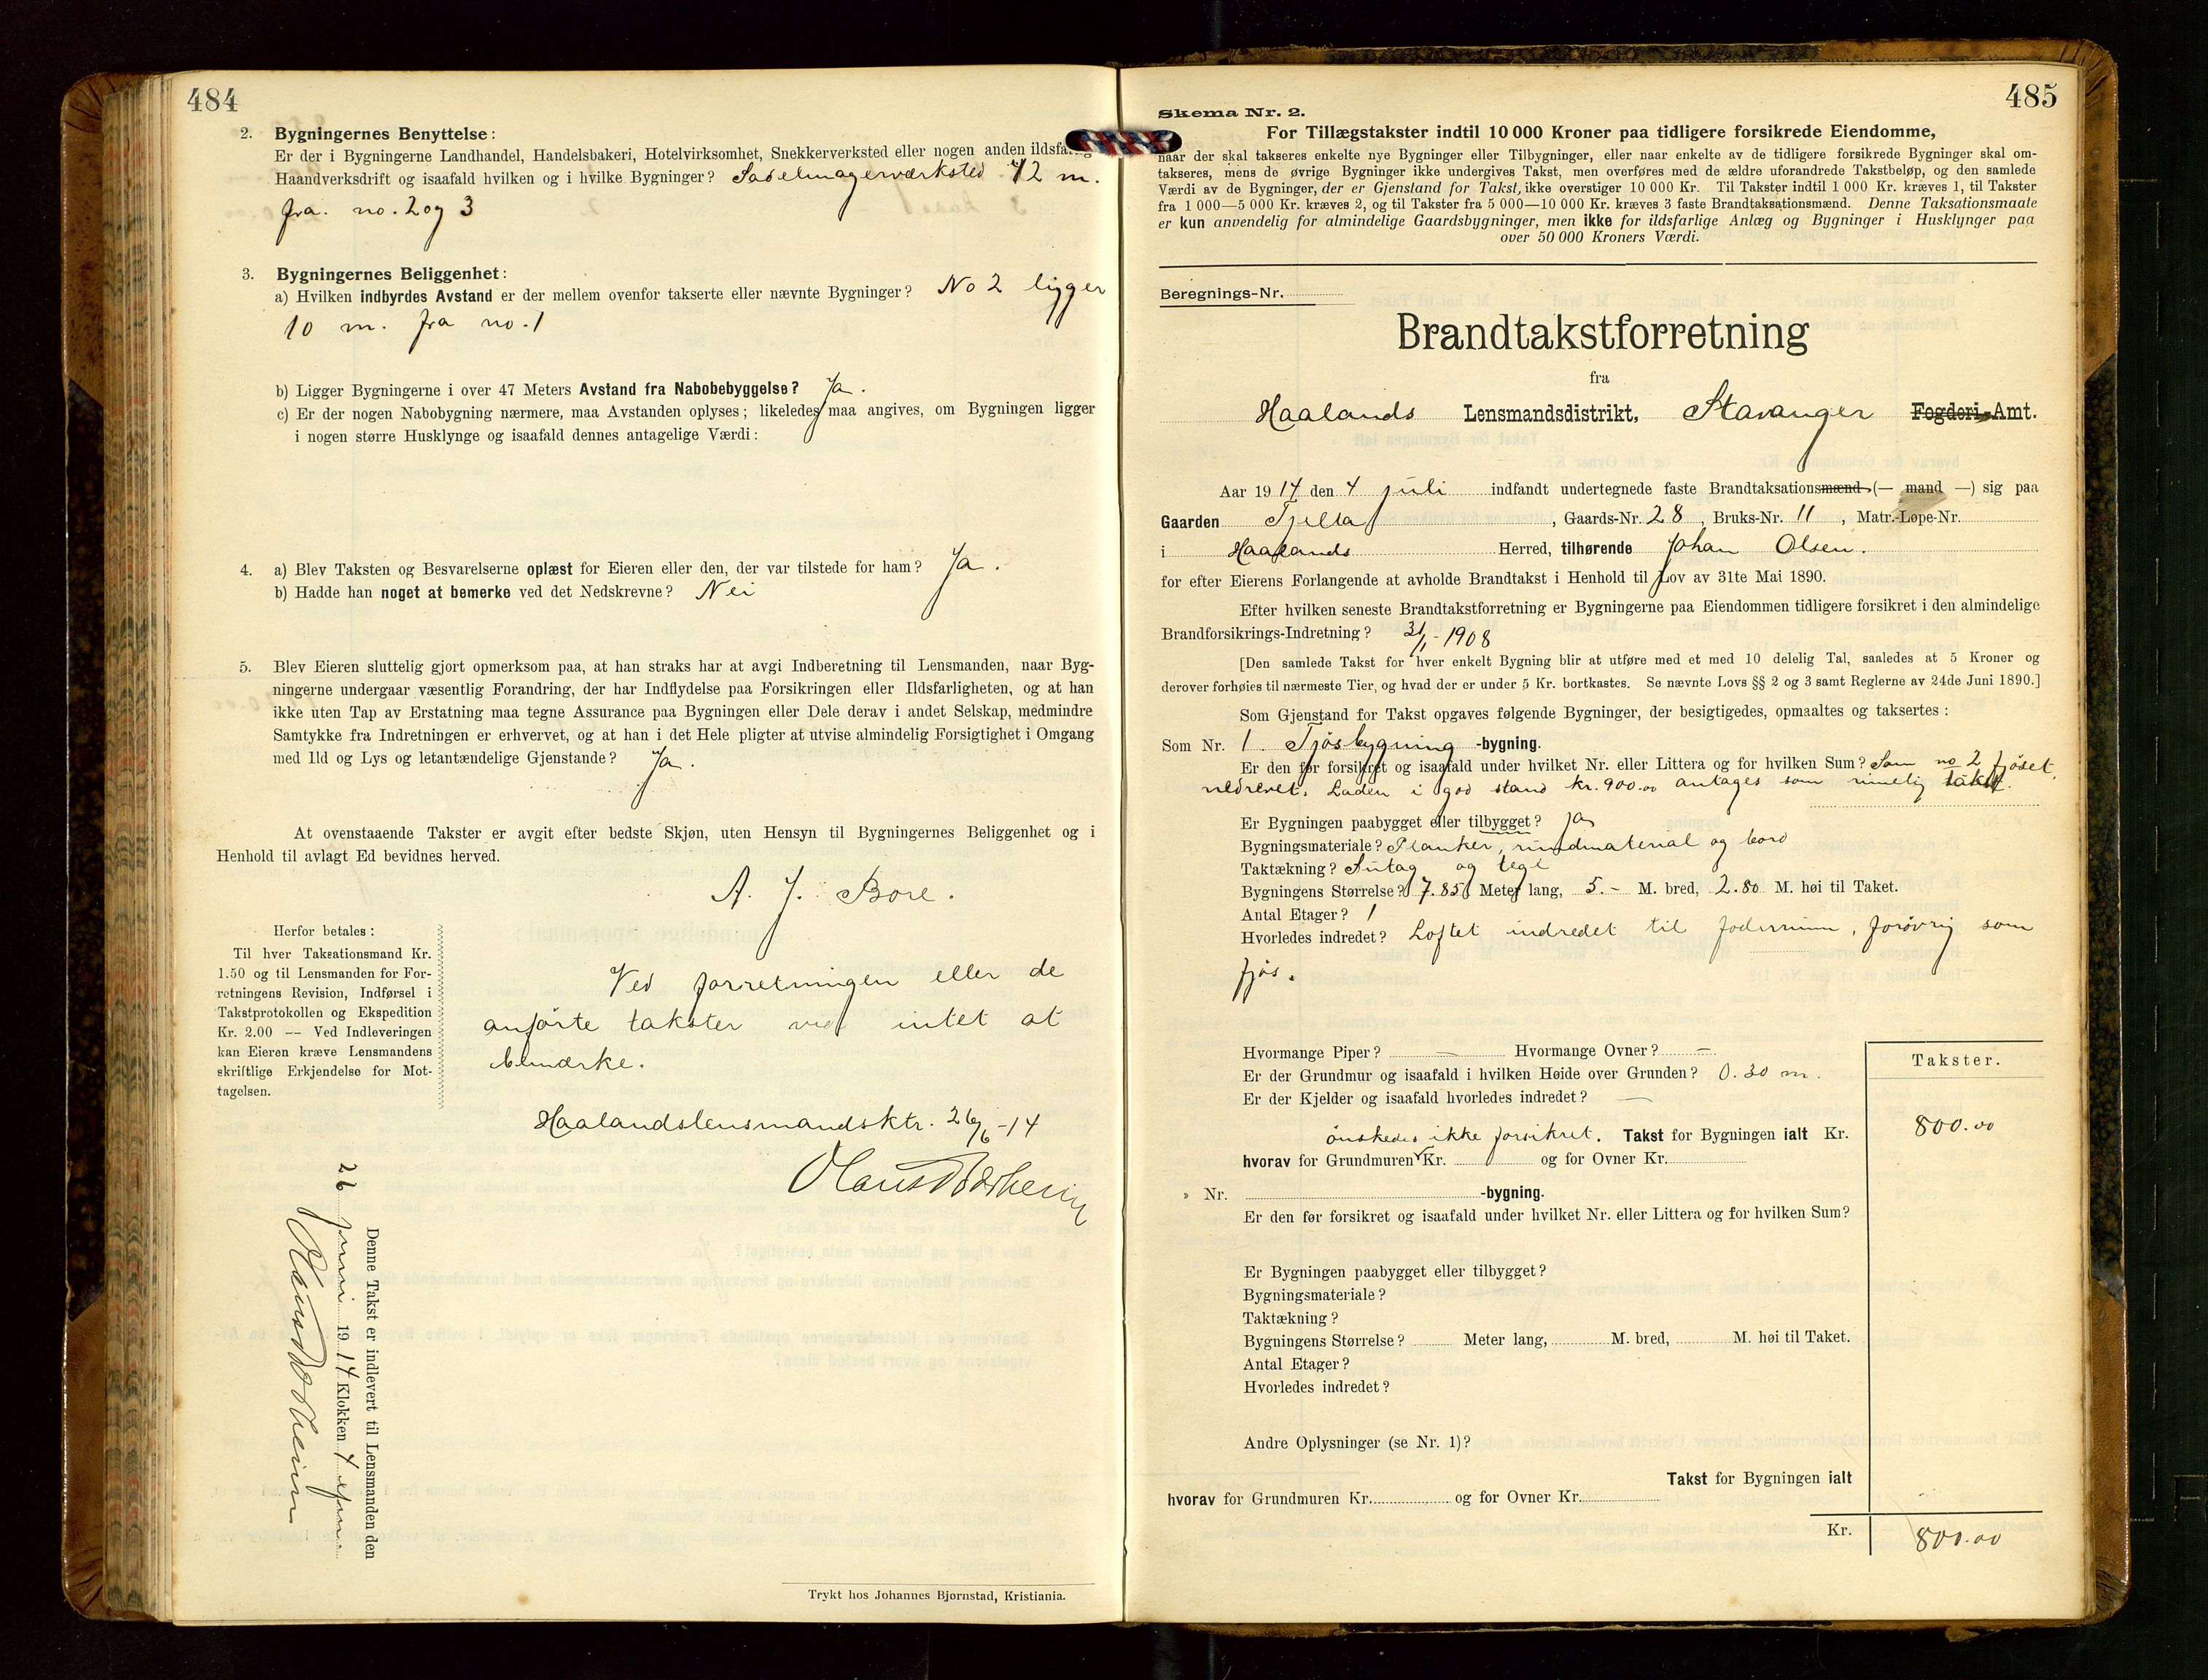 484
2. Bygningernes Benyttelse:
Er der i Bygningerne Landhandel, Handelsbakeri, Hotelvirksomhet, Snekkerverksted eller nogen anden ildsfarlig
Haandverksdrift og isaafald hvilken og i hvilke Bygninger? Sadelmagerværksted 42 m.
fra. no. 2 og 3
3. Bygningernes Beliggenhet:
a) Hvilken indbyrdes Avstand er der mellem ovenfor takserte eller nævnte Bygninger? No 2 ligger
10 m. fra no. 1
b) Ligger Bygningerne i over 47 Meters Avstand fra Nabobebyggelse? Ja.
c) Er der nogen Nabobygning nærmere, maa Avstanden oplyses; likeledes maa angives, om Bygningen ligger
i nogen større Husklynge og isaafald dennes antagelige Værdi:
4. a) Blev Taksten og Besvarelserne oplæst for Eieren eller den, der var tilstede for ham? Ja.
b) Hadde han noget at bemerke ved det Nedskrevne? Nei
5. Blev Eieren sluttelig gjort opmerksom paa, at han straks har at avgi Indberetning til Lensmanden, naar Byg-
ningerne undergaar væsentlig Forandring, der har Indflydelse paa Forsikringen eller Ildsfarligheten, og at han
ikke uten Tap av Erstatning maa tegne Assurance paa Bygningen eller Dele derav i andet Selskap, medmindre
Samtykke fra Indretningen er erhvervet, og at han i det Hele pligter at utvise almindelig Forsigtighet i Omgang
med Ild og Lys og letantændelige Gjenstande? Ja.
At ovenstaaende Takster er avgit efter bedste Skjøn, uten Hensyn til Bygningernes Beliggenhet og i
Henhold til avlagt Ed bevidnes herved.
A. J. Bore.
Herfor betales:
Til hver Taksationsmand Kr.
1.50 og til Lensmanden for For-
retningens Revision, Indførsel i
Takstprotokollen og Ekspedition
Kr. 2.00 — Ved Indleveringen
kan Eieren kræve Lensmandens
skriftlige Erkjendelse for Mot-
tagelsen.
Ved forretningen eller de
anførte takster ved intet at
bemærke.
Haalandslensmandsktr. 26/6-14
Denne Takst er indlevert til Lensmanden den
26 juni 1914 Klokken 4 efm
Trykt hos Johannes Bjørnstad, Kristiania.
485
Skema Nr. 2.
For Tillægstakster indtil 10 000 Kroner paa tidligere forsikrede Eiendomme,
naar der skal takseres enkelte nye Bygninger eller Tilbygninger, eller naar enkelte av de tidligere forsikrede Bygninger skal om-
takseres, mens de øvrige Bygninger ikke undergives Takst, men overføres med de ældre uforandrede Takstbeløp, og den samlede
Værdi av de Bygninger, der er Gjenstand for Takst, ikke overstiger 10 000 Kr. Til Takster indtil 1 000 Kr. kræves 1, til Takster
fra 1 000—5 000 Kr. kræves 2, og til Takster fra 5 000—10 000 Kr. kræves 3 faste Brandtaksationsmænd. Denne Taksationsmaate
er kun anvendelig for almindelige Gaardsbygninger, men ikke for ildsfarlige Anlæg og Bygninger i Husklynger paa
over 50 000 Kroners Værdi.
Beregnings-Nr.
Brandtakstforretning
fra
Haalands Lensmandsdistrikt, Stavanger Fogderi-Amt.
Aar 1914 den 4 juli indfandt undertegnede faste Brandtaksationsmænd (— mand —) sig paa
Gaarden Tjelta, Gaards-Nr. 28, Bruks-Nr. 11, Matr.-Løpe-Nr.
i Haalands Herred, tilhørende Johan Olsen.
for efter Eierens Forlangende at avholde Brandtakst i Henhold til Lov av 31te Mai 1890.
Efter hvilken seneste Brandtakstforretning er Bygningerne paa Eiendommen tidligere forsikret i den almindelige
Brandforsikrings-Indretning? 31/1-1908
[Den samlede Takst for hver enkelt Bygning blir at utføre med et med 10 delelig Tal, saaledes at 5 Kroner og
derover forhøies til nærmeste Tier, og hvad der er under 5 Kr. bortkastes. Se nævnte Lovs §§ 2 og 3 samt Reglerne av 24de Juni 1890.]
Som Gjenstand for Takst opgaves følgende Bygninger, der besigtigedes, opmaaltes og taksertes:
Som Nr. 1. Fjøsbygning -bygning.
Er den før forsikret og isaafald under hvilket Nr. eller Littera og for hvilken Sum? Som no 2 fjøset
nedrevet. Laden i god stand kr. 900.00 antages som rimelig takst.
Er Bygningen paabygget eller tilbygget? ja
Bygningsmateriale? Planker, rundmaterial og bord
Taktækning? Sutag og tegl
Bygningens Størrelse? 7.85 Meter lang, 5.- M. bred, 2.80 M. høi til Taket.
Antal Etager? 1
Hvorledes indredet? Loftet indredet til foderrum, forøvrig som
fjøs.
Hvormange Piper? — Hvormange Ovner? —
Er der Grundmur og isaafald i hvilken Høide over Grunden? 0.30 m.
Er der Kjelder og isaafald hvorledes indredet? —
Takster.
ønskedes ikke forsikret. Takst for Bygningen ialt Kr. 800.00
hvorav for Grundmuren Kr. og for Ovner Kr.
» Nr. -bygning.
Er den før forsikret og isaafald under hvilket Nr. eller Littera og for hvilken Sum?
Er Bygningen paabygget eller tilbygget?
Bygningsmateriale?
Taktækning?
Bygningens Størrelse? Meter lang, M. bred, M. høi til Taket.
Antal Etager?
Hvorledes indredet?
Andre Oplysninger (se Nr. 1)?
Takst for Bygningen ialt
hvorav for Grundmuren Kr. og for Ovner Kr.
Kr. 800.00